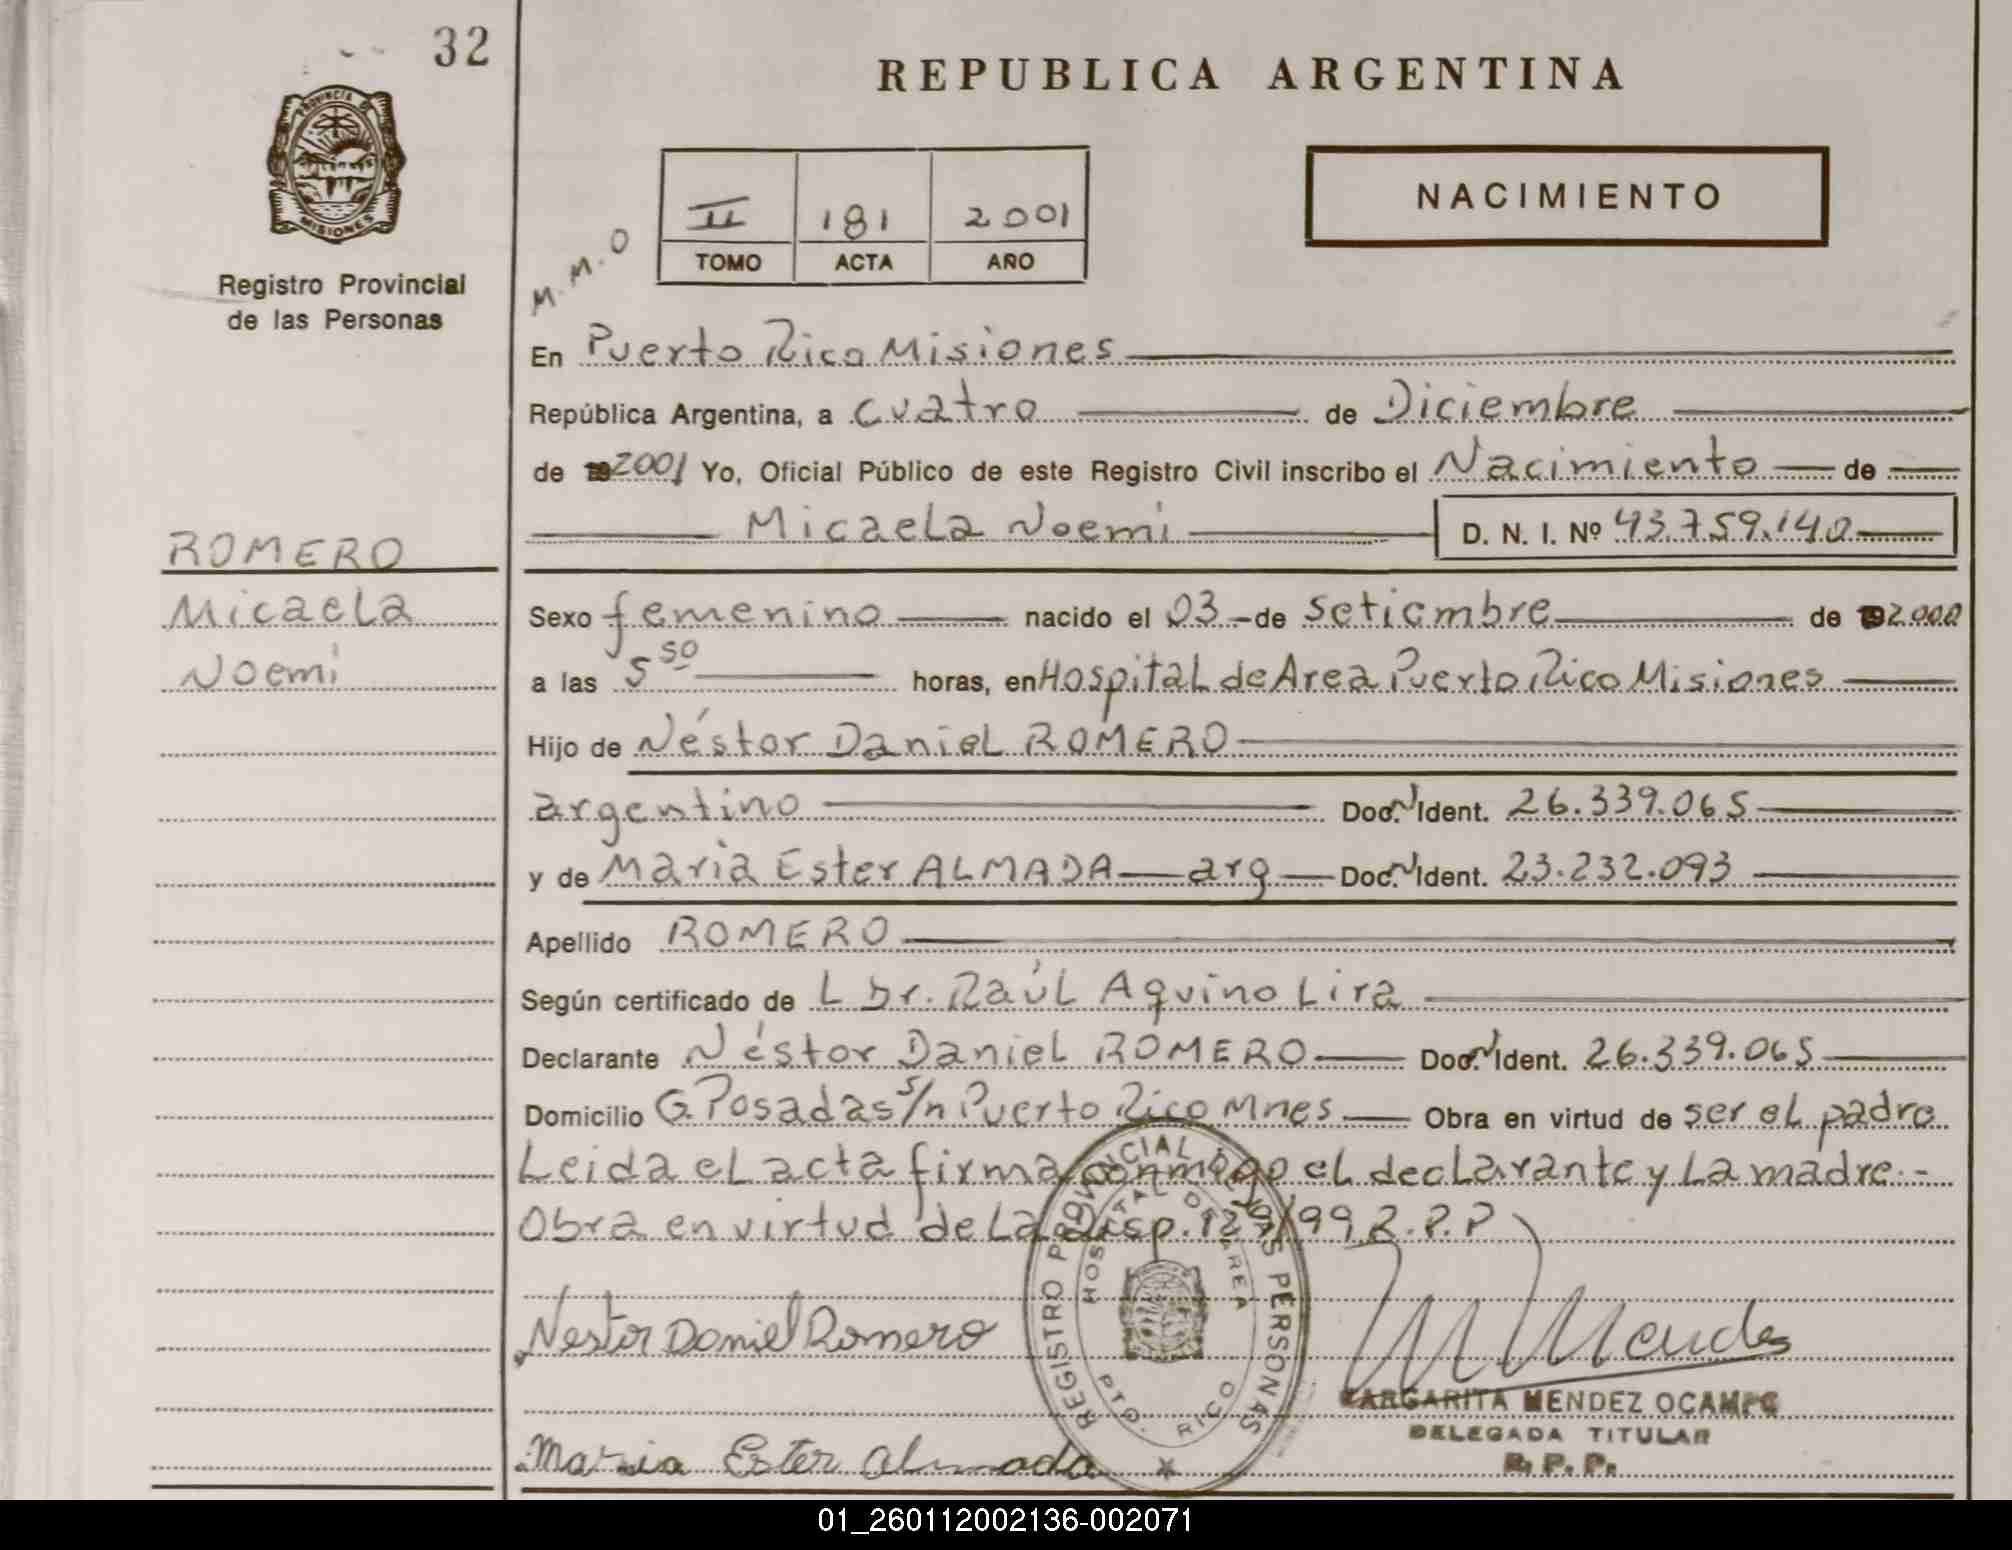 32
REPUBLICA ARGENTINA
PROVINCIA DE
MISIONES
Registro Provincial
de las Personas
II 181 2001
TOMO ACTA AÑO
NACIMIENTO
M.M.O
En Puerto Rico Misiones
República Argentina, a cuatro de Diciembre
de 2001 Yo, Oficial Público de este Registro Civil inscribo el Nacimiento de
Micaela Noemi D. N. I. Nº 43.759.140
ROMERO
Micaela
Noemi
Sexo femenino nacido el 03 de setiembre de 2.000
a las 5 50 horas, en Hospital de Area Puerto Rico Misiones
Hijo de Néstor Daniel ROMERO
argentino Doc. N Ident. 26.339.065
y de Maria Ester ALMADA arg Doc. N Ident. 23.232.093
Apellido ROMERO
Según certificado de L Dr. Raúl Aquino Lira
Declarante Néstor Daniel ROMERO Doc. N Ident. 26.339.065
Domicilio G. Posadas s/n Puerto Rico Mnes Obra en virtud de ser el padre
Leida el acta firma conmigo el declarante y La madre.-
Obra en virtud de La Disp. /99 R.P.P
REGISTRO PROVINCIAL DE LAS PERSONAS
HOSPITAL DE AREA
PTO. RICO
Nestor Daniel Romero
M Mendes
MARGARITA MENDEZ OCAMPO
DELEGADA TITULAR
R. P. P.
Maria Ester Almada
01_260112002136-002071